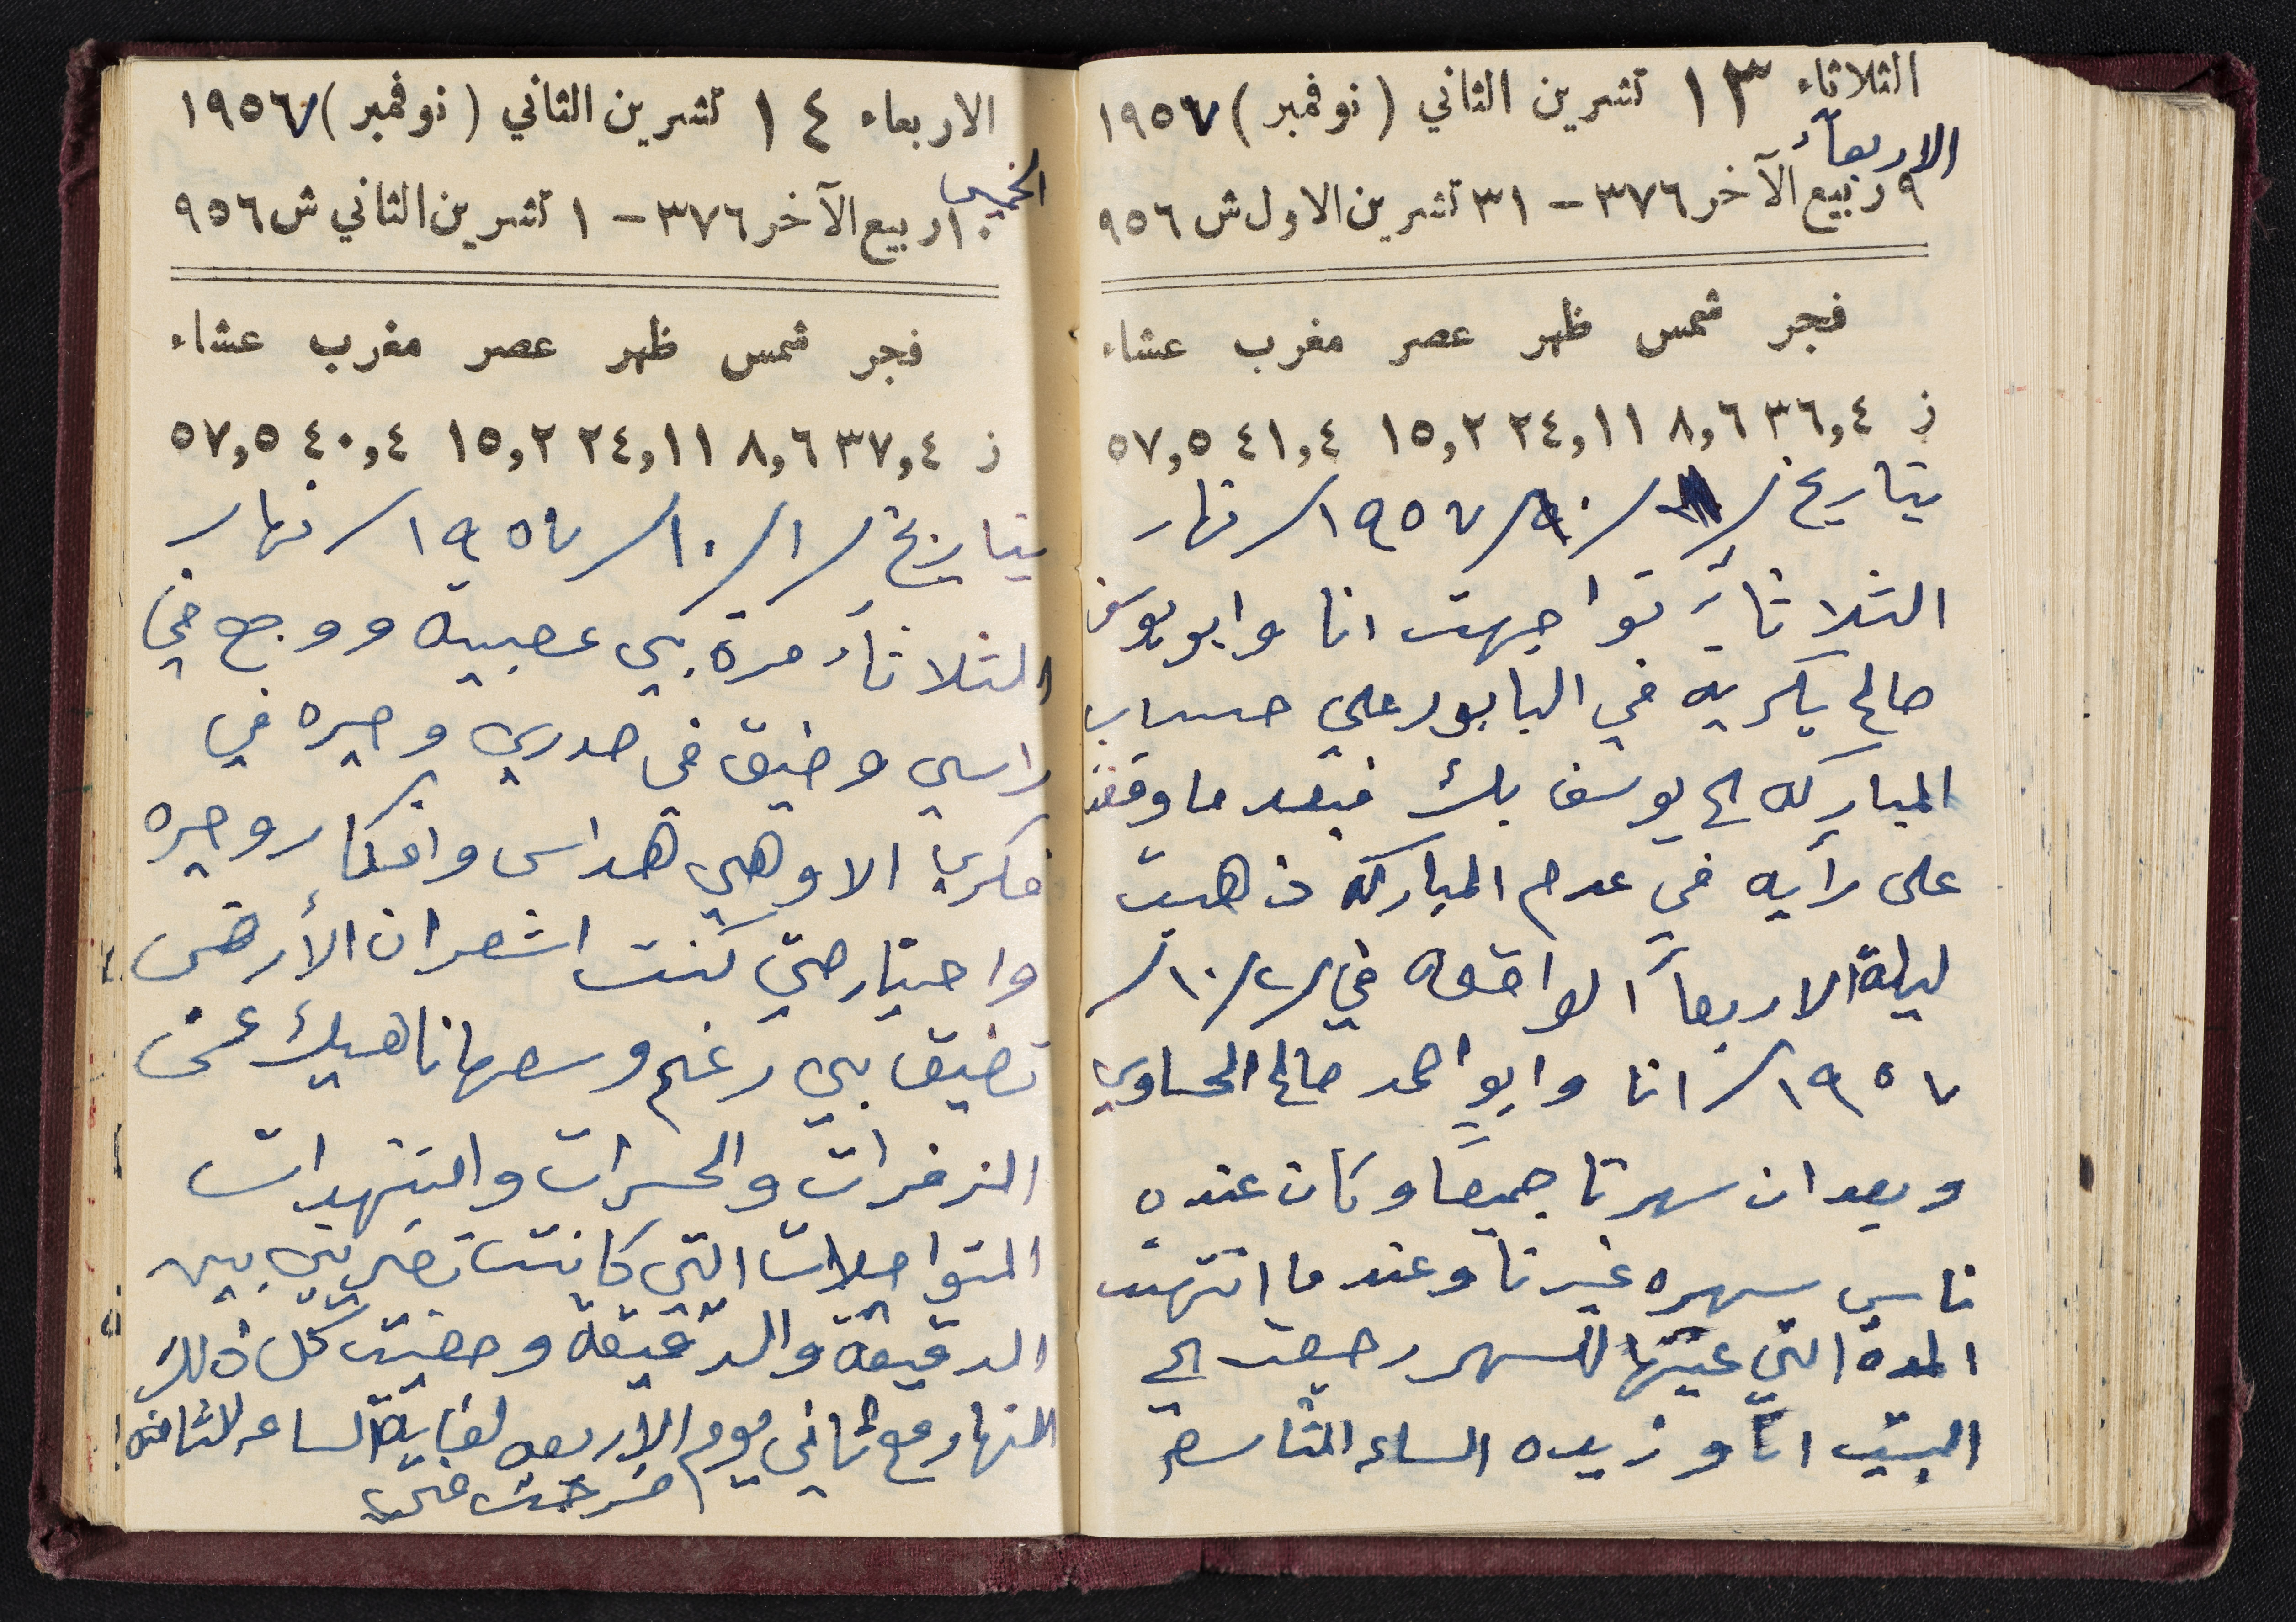 الثلاثاء ١٣ تشرين الثاني (نوفمبر) ١٩٥٧
الاربعاء
٩ ربيع الآخر ٣٧٦ – ٣١ تشرين الاول ش ٩٥٦
فجر شمس ظهر عصر مغرب عشاء
ز ٣٦,٤ ٨,٦ ٢٤,١١ ١٥,٢ ٤١,٤ ٥٧,٥
بتاريخ /١٠/١٩٥٧/ نهار
الثلاثاء تواجهت انا وابو يوسف
صالح يكريه في البابور على حساب
المباركه الى يوسف بك فبعد ما وقفت
على رأيه في عدم المباركه ذهبت
ليلة الاربعاء الواقعه في /٢/١٠/
١٩٥٧/ انا وابو احمد صالح الحساوي
وبعد ان سهرنا جميعاً وكان عنده
ناس سهره غيرنا وعندما انتهت
المدة التي عينتها للسهر رجعت الى
البيت انا وزيده الساعه التاسعه
الاربعاء ١٤ تشرين الثاني (نوفمبر) ١٩٥٧
الخميس
١٠ ربيع الآخر ٣٧٦ – ١ تشرين الثاني ش ٩٥٦
فجر شمس ظهر عصر مغرب عشاء
ز ٣٧,٤ ٨,٦ ٢٤,١١ ١٥,٢ ٤٠,٤ ٥٧,٥
بتاريخ /١/١٠/١٩٥٧/ نهار
الثلاثاء مرة بي عصبية ووجع في
راسي وضيق في صدري وحيره في
فكري الا وهي هداس وافكار وحيره
واحتيار حتى كنت اشعر ان الأرض
تضيق بي رغم وسعها ناهيك عن
الزفرات والحسرات والتنهدات
المتواصلات التي كانت تضربني بين
الدقيقة والدقيقة ومضيت كل ذلك
النهار مع ثاني يوم الاربعه لغاية الساعه الثامنه
فرجت عني